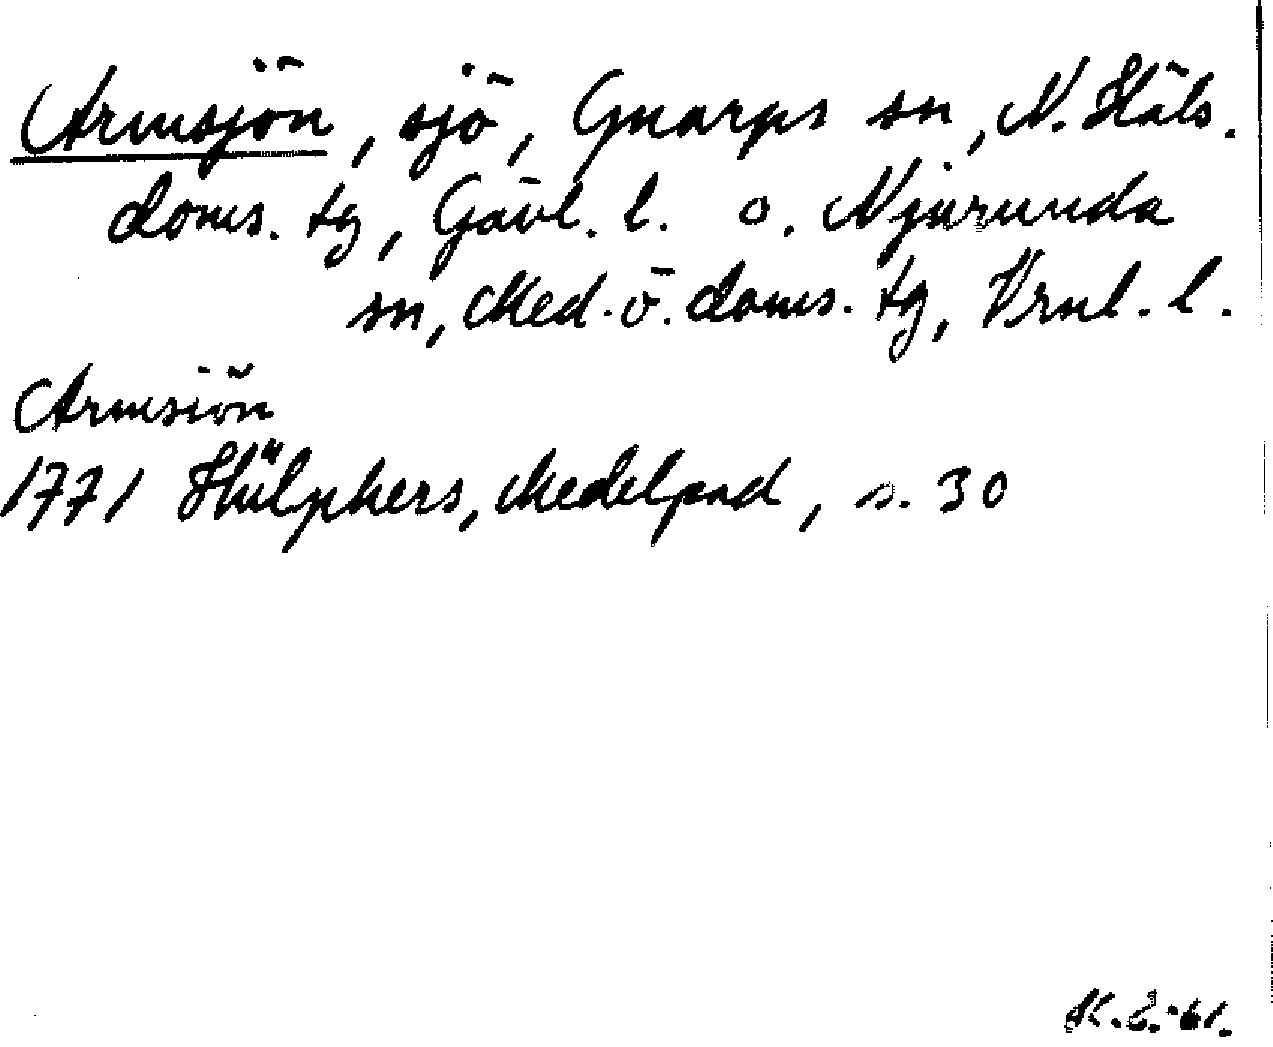 Armsjön, sjö, Gnarps sn, N. Häls.
doms. tg, Gävl. l. o. Njurunda
sn, Med. ö. doms. tg, Vrnl. l.
Armsiön
1771 Hülphers, Medelpad, s. 30
K.E.-61.